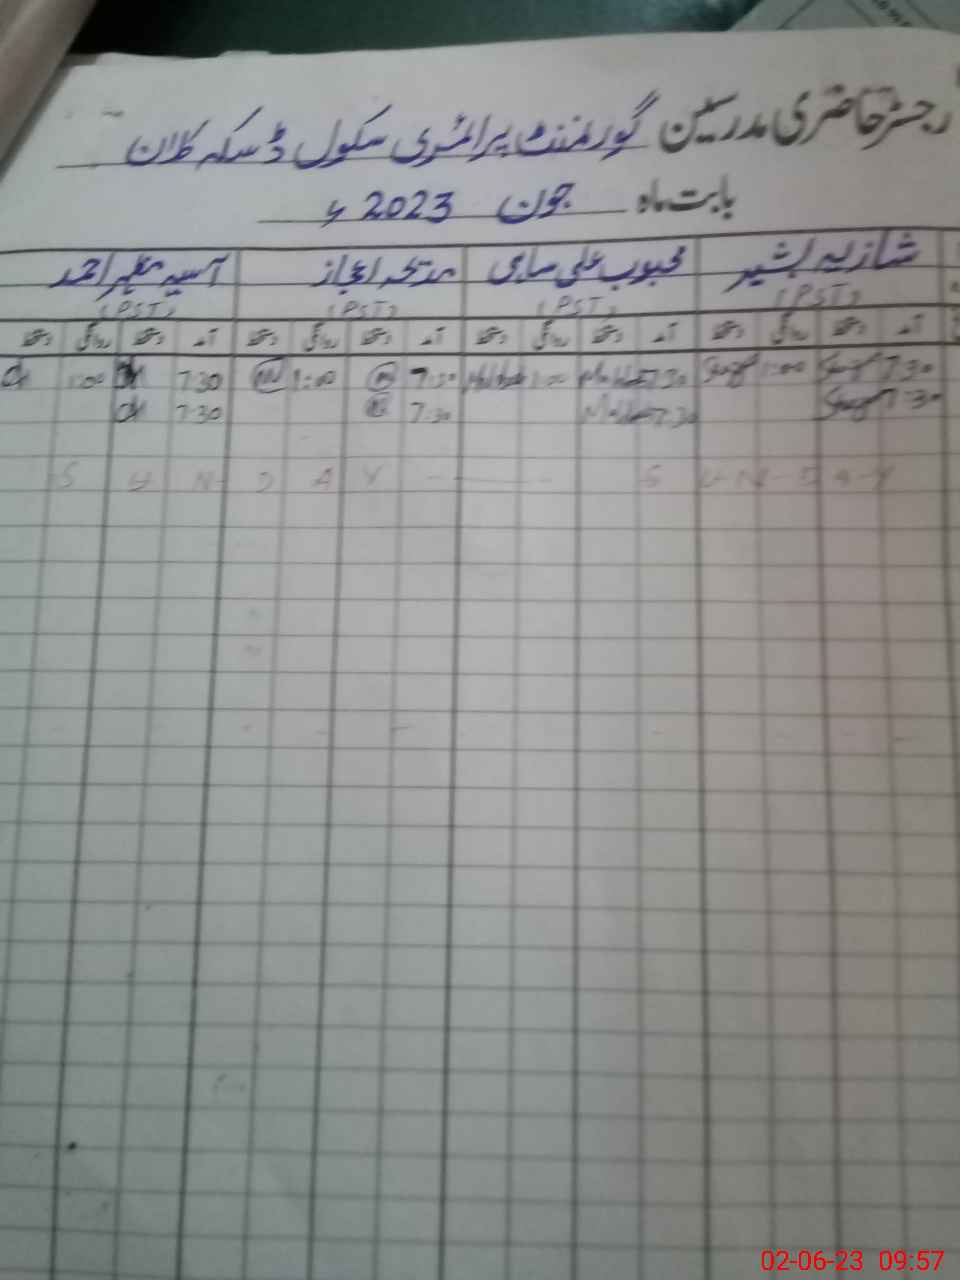 رجسٹر حاضری مدرسین گورنمنٹ پرائمری سکول ڈسکہ کلاں
بابت ماہ جون 2023ء
شازیہ بشیر محبوب علی ساہی مدیحہ اعجاز آسیہ مظہر احمد
(PST) (PST) (PST) (PST)
آمد دستخط روانگی دستخط آمد دستخط روانگی دستخط آمد دستخط روانگی دستخط آمد دستخط روانگی دستخط
7:30 1:00 7:30 1:00 7:30 1:00 7:30 1:00
7:30 7:30 7:30 7:30
S U N D A Y S U N D A Y
02-06-23 09:57